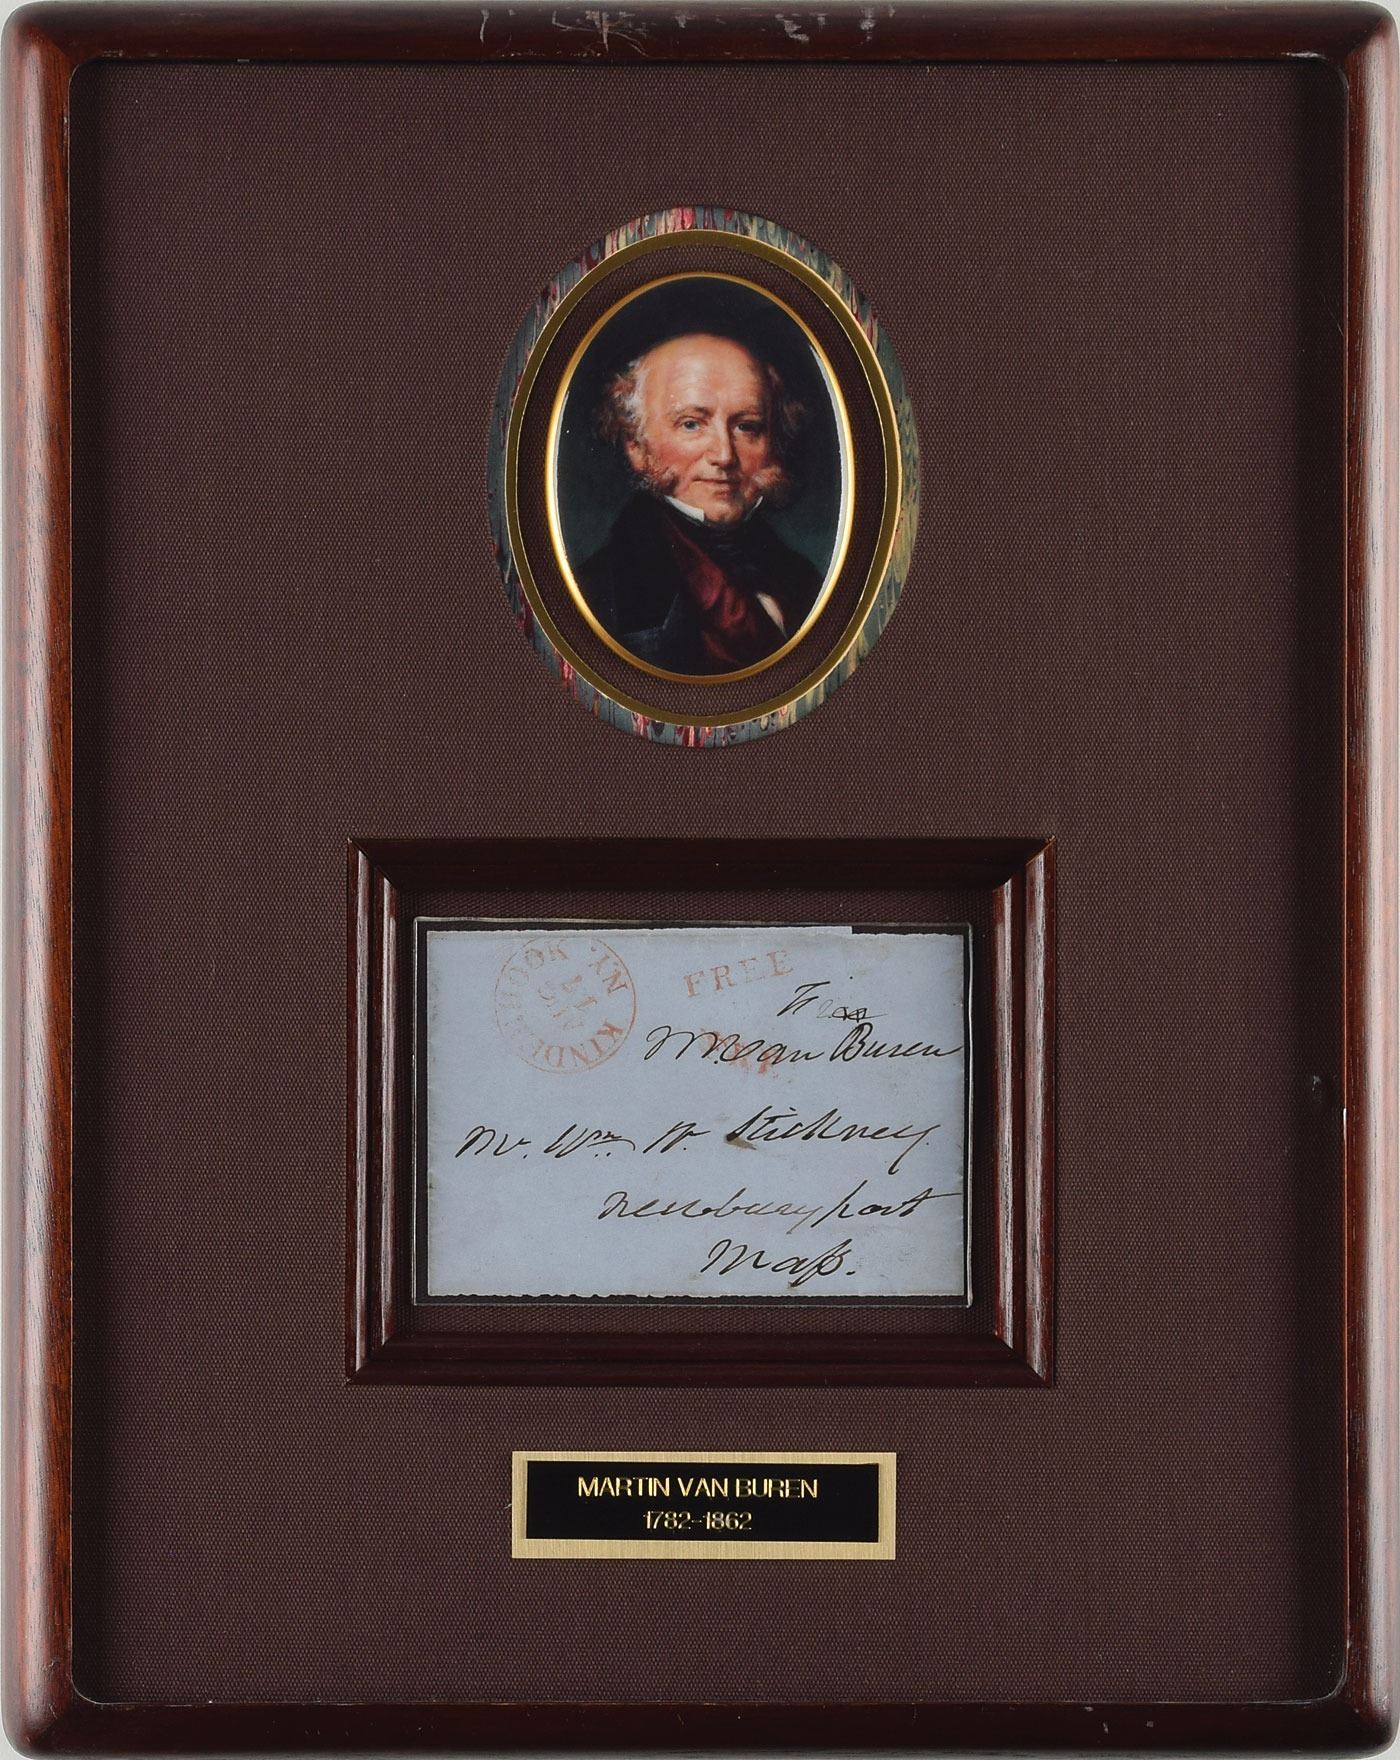 KINDERHOOK N.Y.
JUN
14
FREE
Free
M. Van Buren
Mr. Wm. W. Stickney.
Newburyport
Maſs.
MARTIN VAN BUREN
1782-1862